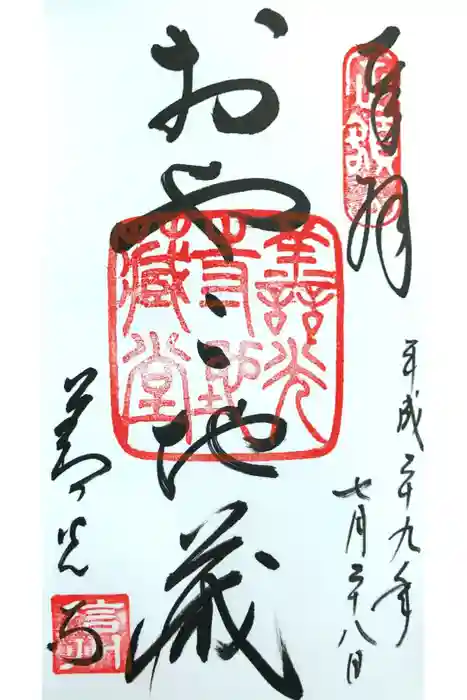 奉拝
平成二十九年
七月二十八日
おやこ地蔵
善光
寺地
蔵堂
善光寺